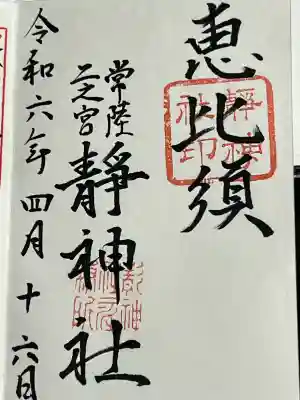 恵比須
常陸二之宮
靜神社
令和六年四月十六日
靜神社印